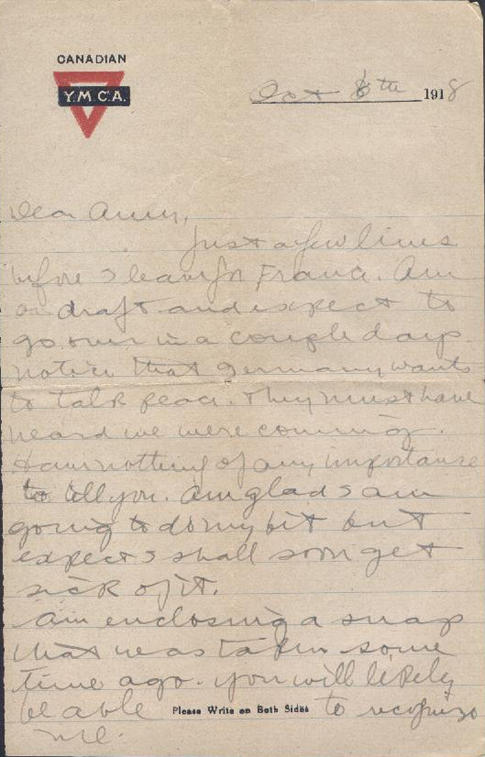 CANADIAN
Y.M.C.A.
Oct 8th 1918
Dear Amy,
Just a few lines
before I leave for France. Am
on draft and expect to
go over in a couple days.
notice that Germany wants
to talk peace. They must have
heard we were coming.
Have nothing of any importance
to tell you. Am glad I am
going to do my bit but
expect I shall soon get
sick of it.
Am enclosing a snap
that was taken some
time ago. You will likely
be able to recognize
Please Write on Both Sides
me.